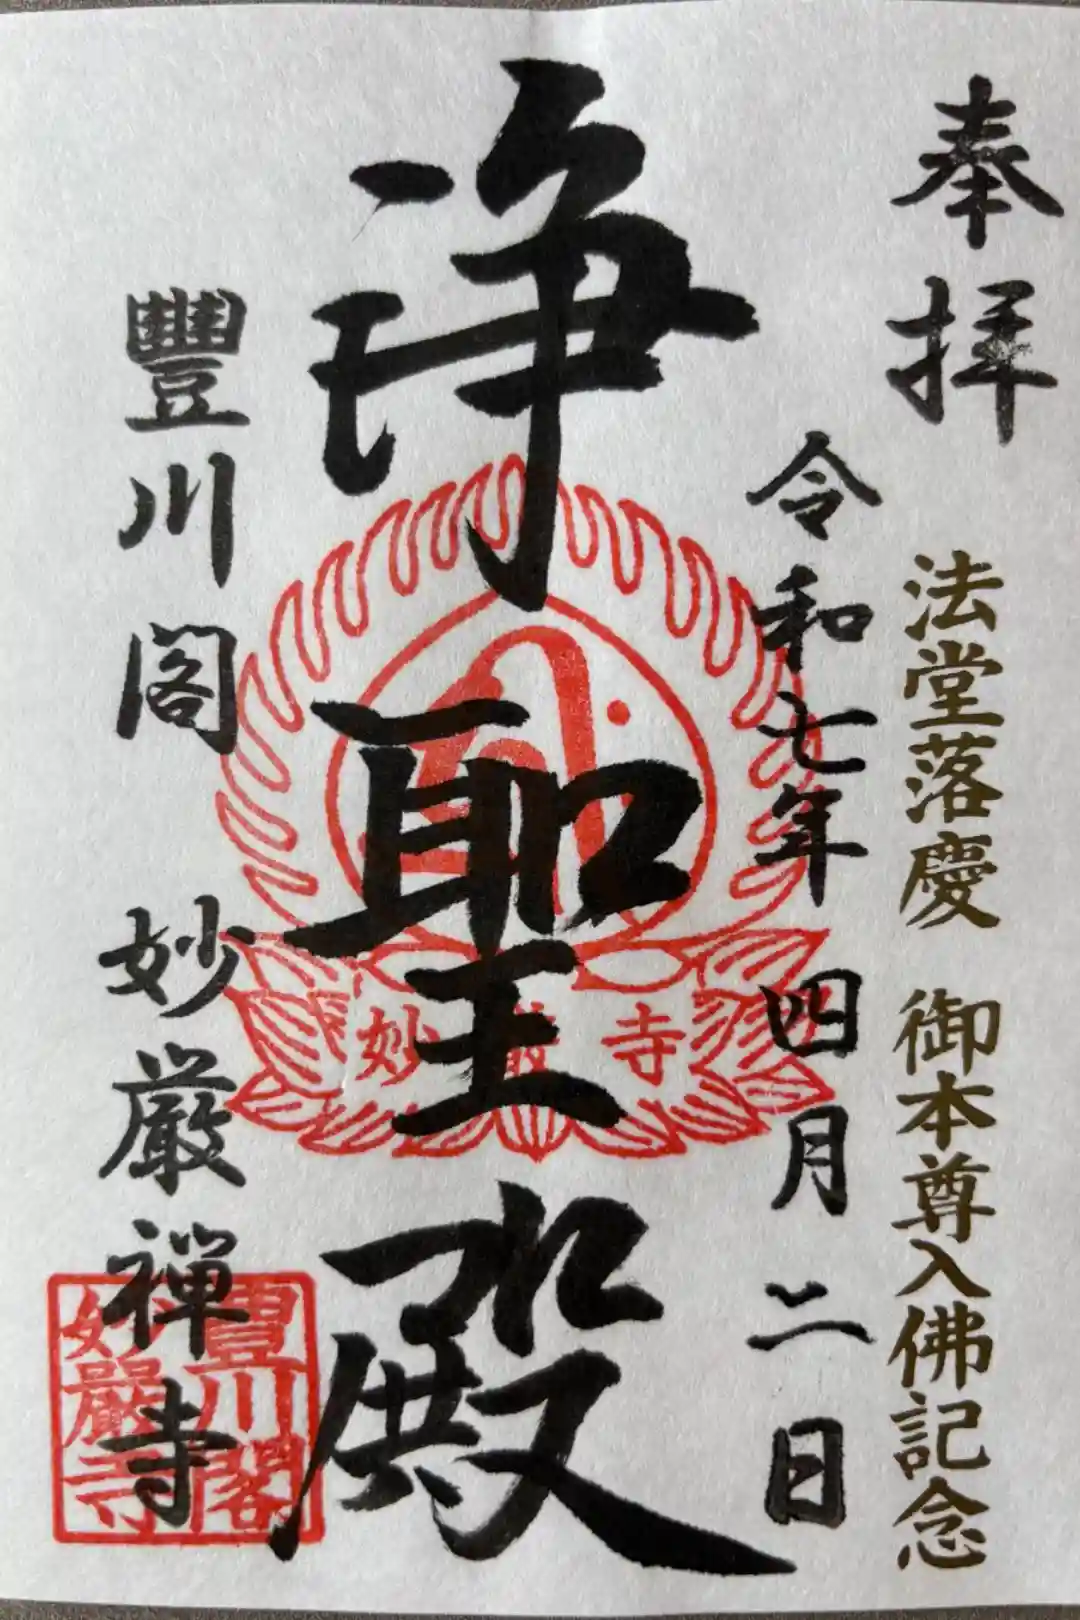 奉拝
法堂落慶 御本尊入佛記念
令和七年四月二日
浄聖殿
妙厳寺
豐川閣 妙厳禅寺
豐川閣
妙嚴寺